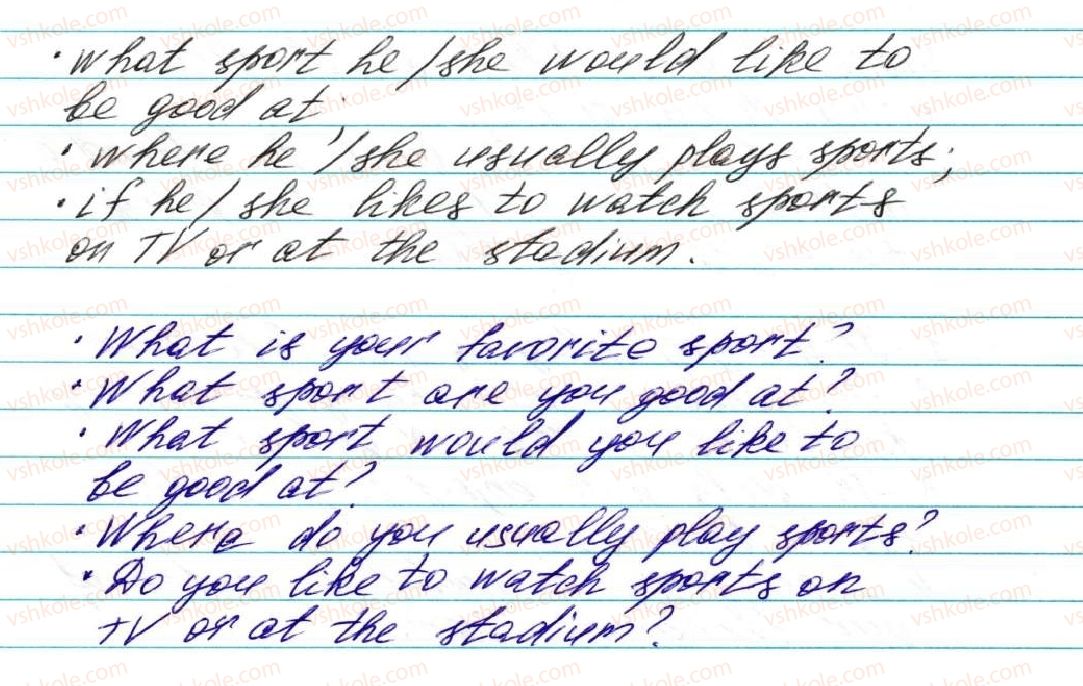 · what sport he/she would like to
be good at.
· where he/she usually plays sports;
· if he/she likes to watch sports
on TV or at the stadium.
· What is your favorite sport?
· What sport are you good at?
· What sport would you like to
be good at?
· Where do you usually play sports?
· Do you like to watch sports on
TV or at the stadium?